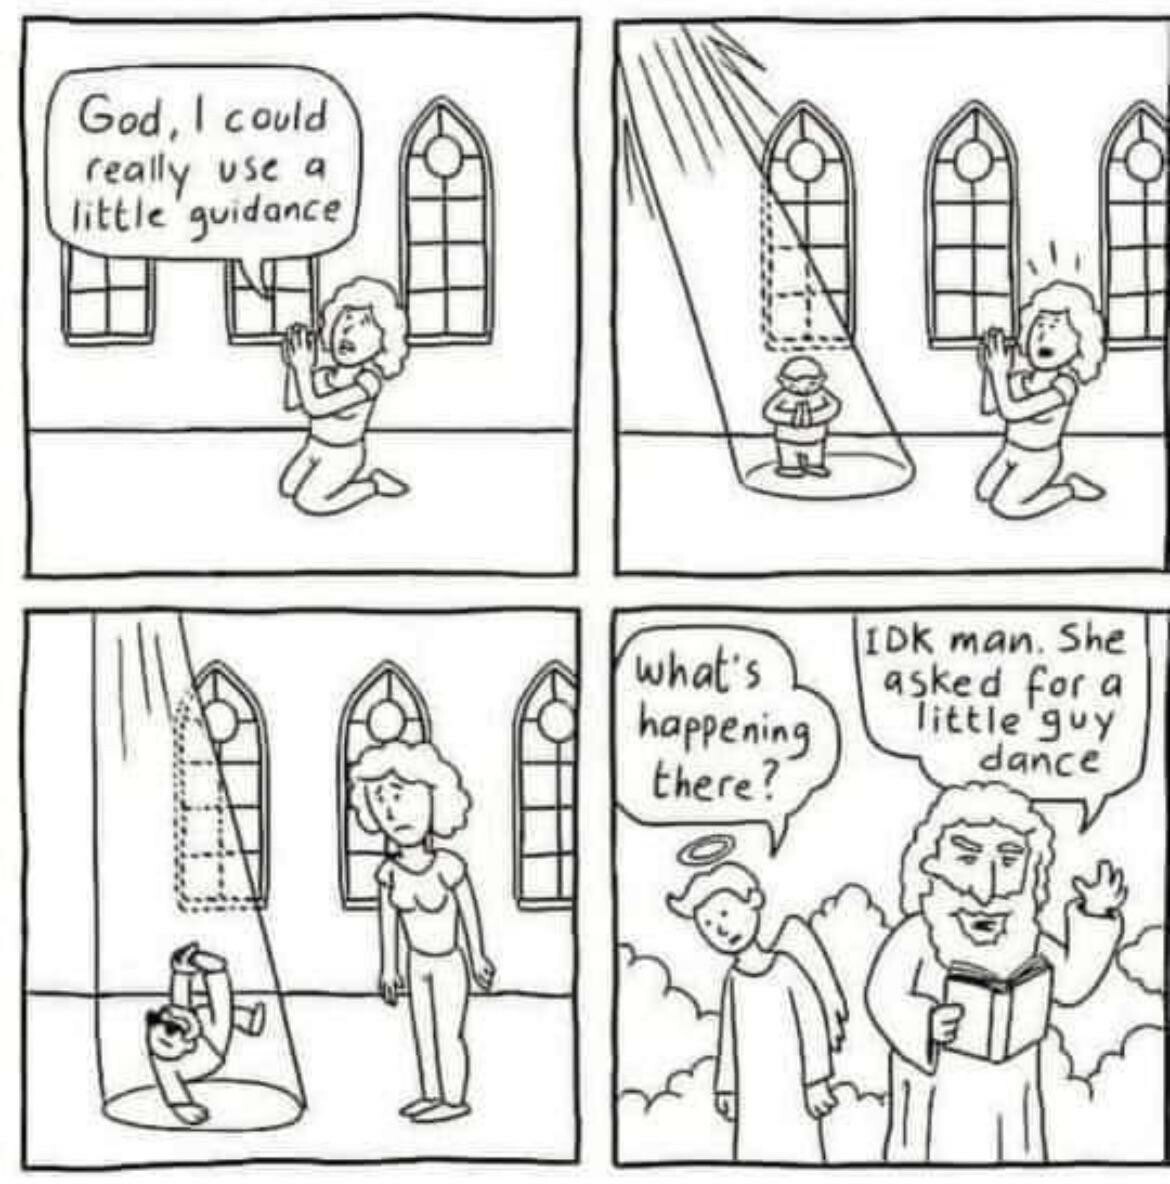 God, I could
really use a
little guidance
What's
happening
there?
IDK man. She
asked for a
little guy
dance